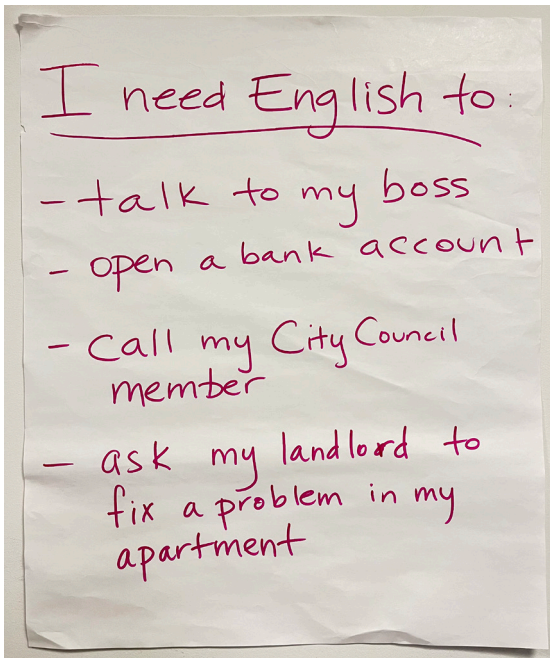 I need English to:
- talk to my boss
- open a bank account
- call my City Council
member
- ask my landlord to
fix a problem in my
apartment